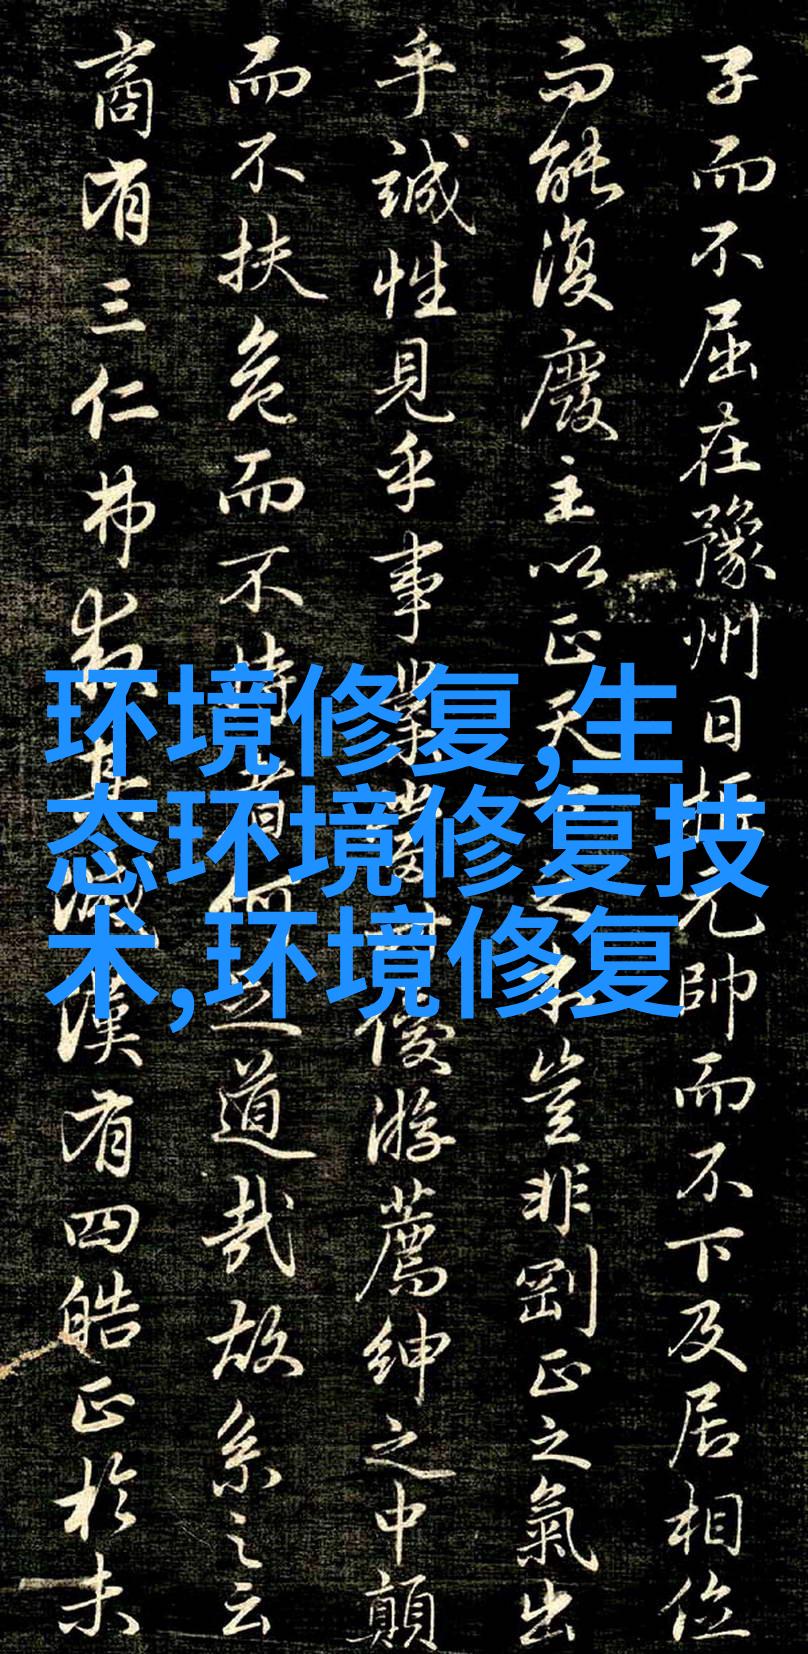 子而不屈在豫州日抵元帥而不下及居相位
而能復廢主以正天下之本豈非剛正之氣出
乎誠性見乎事業當時優游薦紳之中顛
而不扶危而不持者何之道哉故系之云
商有三仁弗制其滅漢有四皓正於未
环境修复,生
态环境修复技
术,环境修复